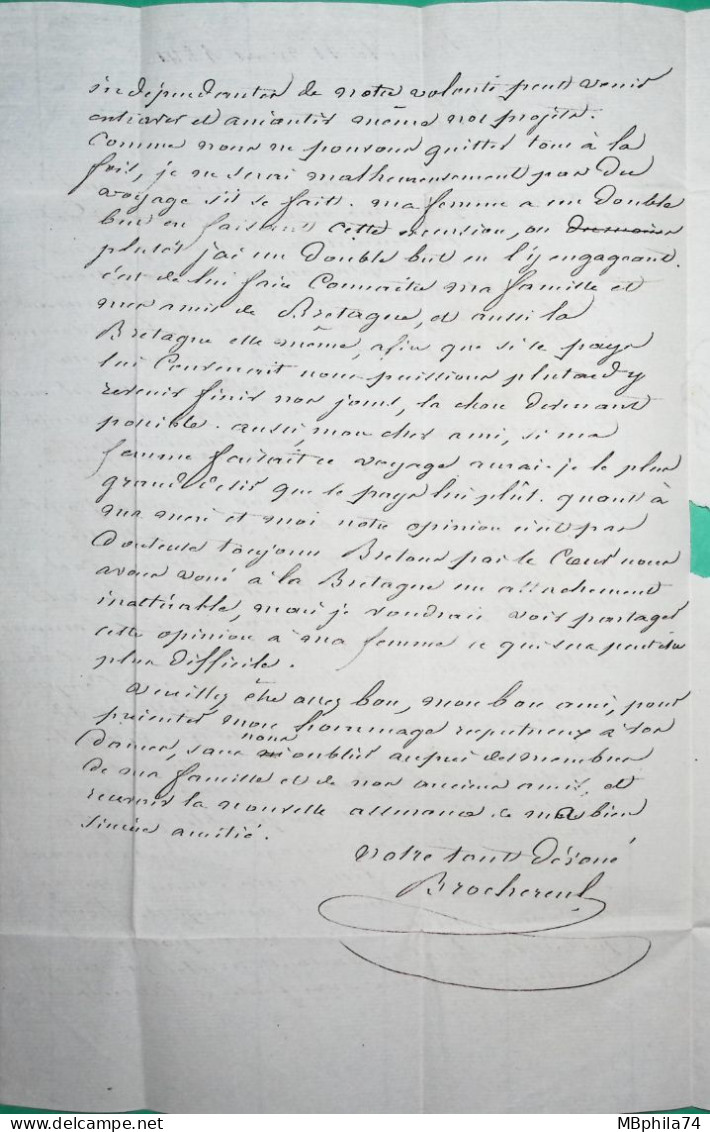 indépendantes de notre volonté peut venir
entraver et anéantir même nos projets.
Comme nous ne pouvons quitter tous à la
fois, je ne serai malheureusement pas du
voyage s'il se fait. ma femme a un double
but en faisant cette excursion, ou
plutôt j'ai un double but en l'y engageant.
c'est de lui faire Connaitre ma famille et
mes amis de Bretagne, et aussi la
Bretagne elle même, afin que si le pays
lui Convenait nous puissions plutard y
revenir finir nos jours, la chose devenant
possible. aussi, mon cher ami, si ma
femme faisait ce voyage aurai-je le plus
grand désir que le pays lui plût. quant à
ma mère et moi notre opinion n'est pas
douteuse toujours Bretons par le Cœur nous
avons voué à la Bretagne un attachement
inaltérable, mais je voudrais voir partager
cette opinion à ma femme ce qui sera peut être
plus difficile.
Veuillez être assez bon, mon bon ami, pour
présenter mon hommage respectueux à vos
Dames, sans nous oublier auprès des membres
de ma famille et de nos anciens amis, et
recevoir la nouvelle assurance de ma bien
sincère amitié.
Votre tout dévoué
Brochereul
MBphila74
delcampe.net